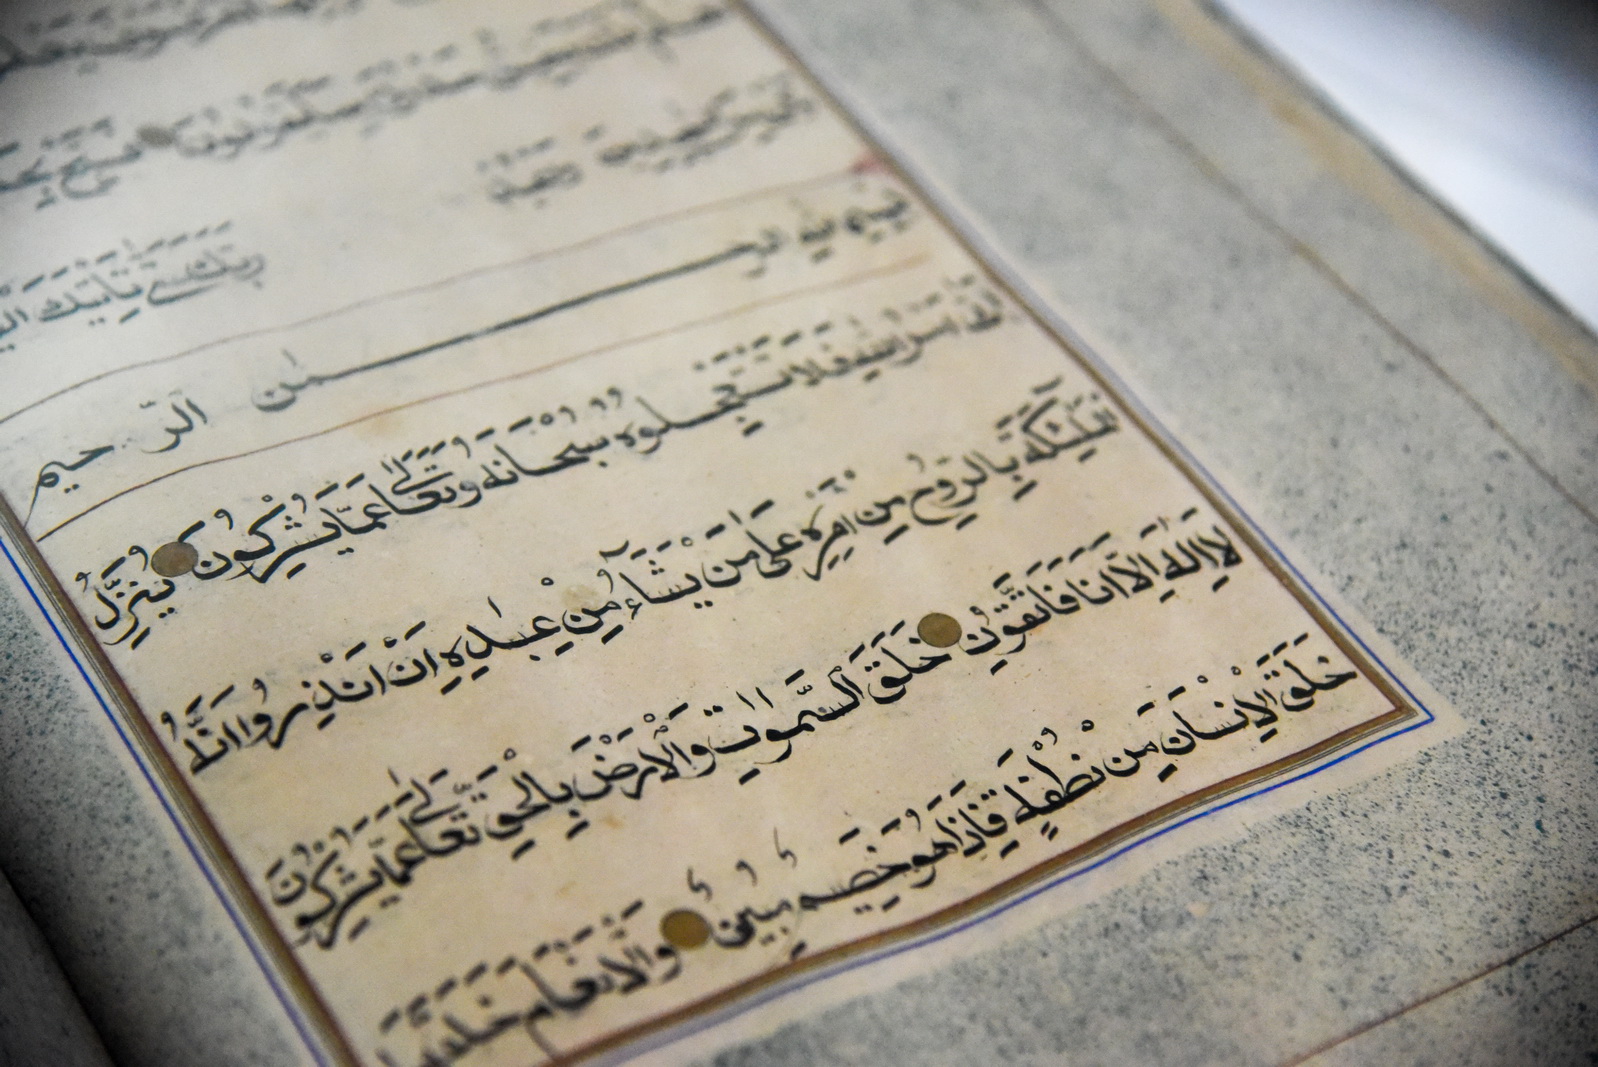 فَسَبِّحْ
رَبَّكَ حَتّٰى يَاْتِيَكَ
بِسْمِ اللهِ الرَّحْمٰنِ الرَّحِيمِ
اَتٰى اَمْرُ اللهِ فَلَا تَسْتَعْجِلُوهُ سُبْحَانَهُ وَتَعَالٰى عَمَّا يُشْرِكُونَ يُنَزِّلُ
الْمَلٰئِكَةَ بِالرُّوحِ مِنْ اَمْرِهِ عَلٰى مَنْ يَشَآءُ مِنْ عِبَادِهِ اَنْ اَنْذِرُوا اَنَّهُ
لَا اِلٰهَ اِلَّا اَنَا فَاتَّقُونِ خَلَقَ السَّمٰوَاتِ وَالْاَرْضَ بِالْحَقِّ تَعَالٰى عَمَّا يُشْرِكُونَ
خَلَقَ الْاِنْسَانَ مِنْ نُطْفَةٍ فَاِذَا هُوَ خَصِيمٌ مُبِينٌ وَالْاَنْعَامَ خَلَقَهَا